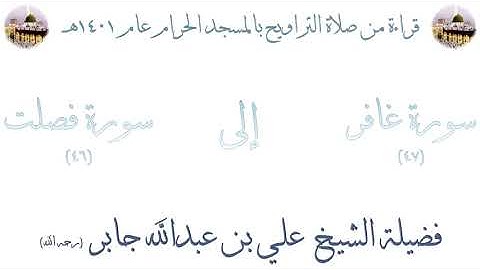 قراءة من صلاة التراويح بالمسجد الحرام عام ١٤٠١هـ
سورة غافر إلى سورة فصلت
(٤٧) (٤٦)
فضيلة الشيخ علي بن عبدالله جابر (رحمه الله)